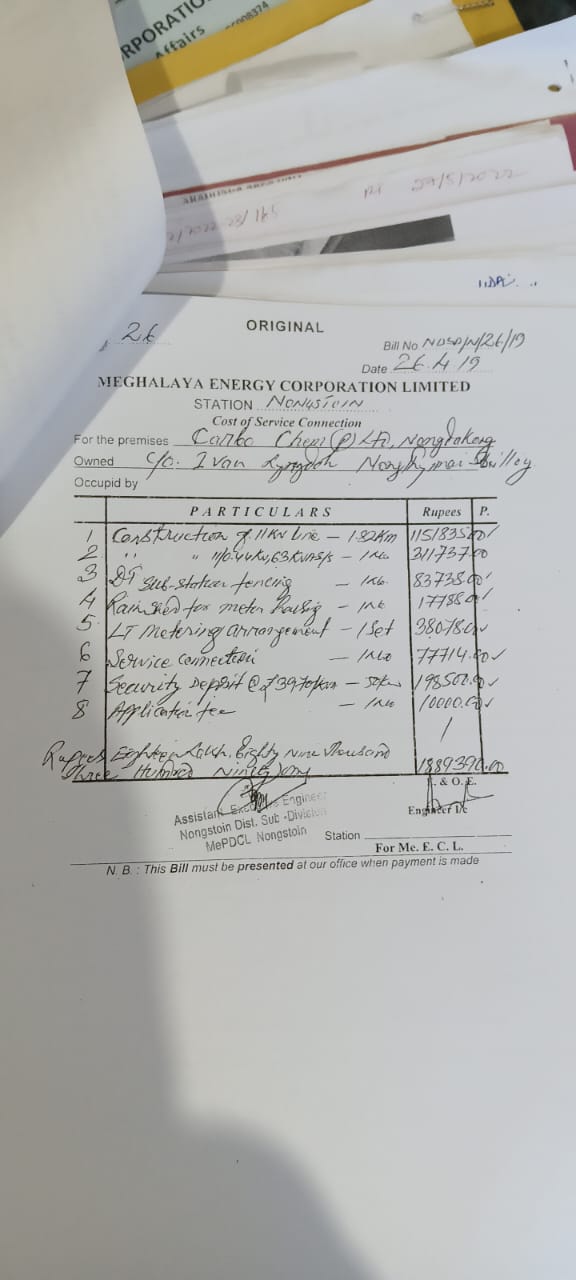 RPORATIO
Affairs
29/5/2022
26
ORIGINAL
Bill No NDSD/N/26/19
Date 26.4.19
MEGHALAYA ENERGY CORPORATION LIMITED
STATION NONGSTOIN
Cost of Service Connection
For the premises Carbo Chem (P) Ltd,
Owned C/o. Ivan Lyngdoh Nongthymmai Shillong
Occupid by
PARTICULARS Rupees P.
1 Construction of 11KV line – 1.82Km 1151835.00
2 " " 11/0.44KV, 63KVA S/s – 1No 311737.00
3 DT Sub-station fencing – 1No. 83738.00
4 Rainshed for meter housing – 1No 17788.00
5. LT Metering arrangement – 1Set 38078.00
6 Service connection – 1No 77714.00
7 Security Deposit @ – 198500.00
8 Application fee – 1No 10000.00
Rupees Eighteen Lakh Eighty Nine Thousand
Three Hundred Ninety only 1889390.00
. & O. E.
Assistant Executive Engineer
Nongstoin Dist. Sub-Division
MePDCL Nongstoin
Engineer I/c
Station
For Me. E. C. L.
N. B. : This Bill must be presented at our office when payment is made